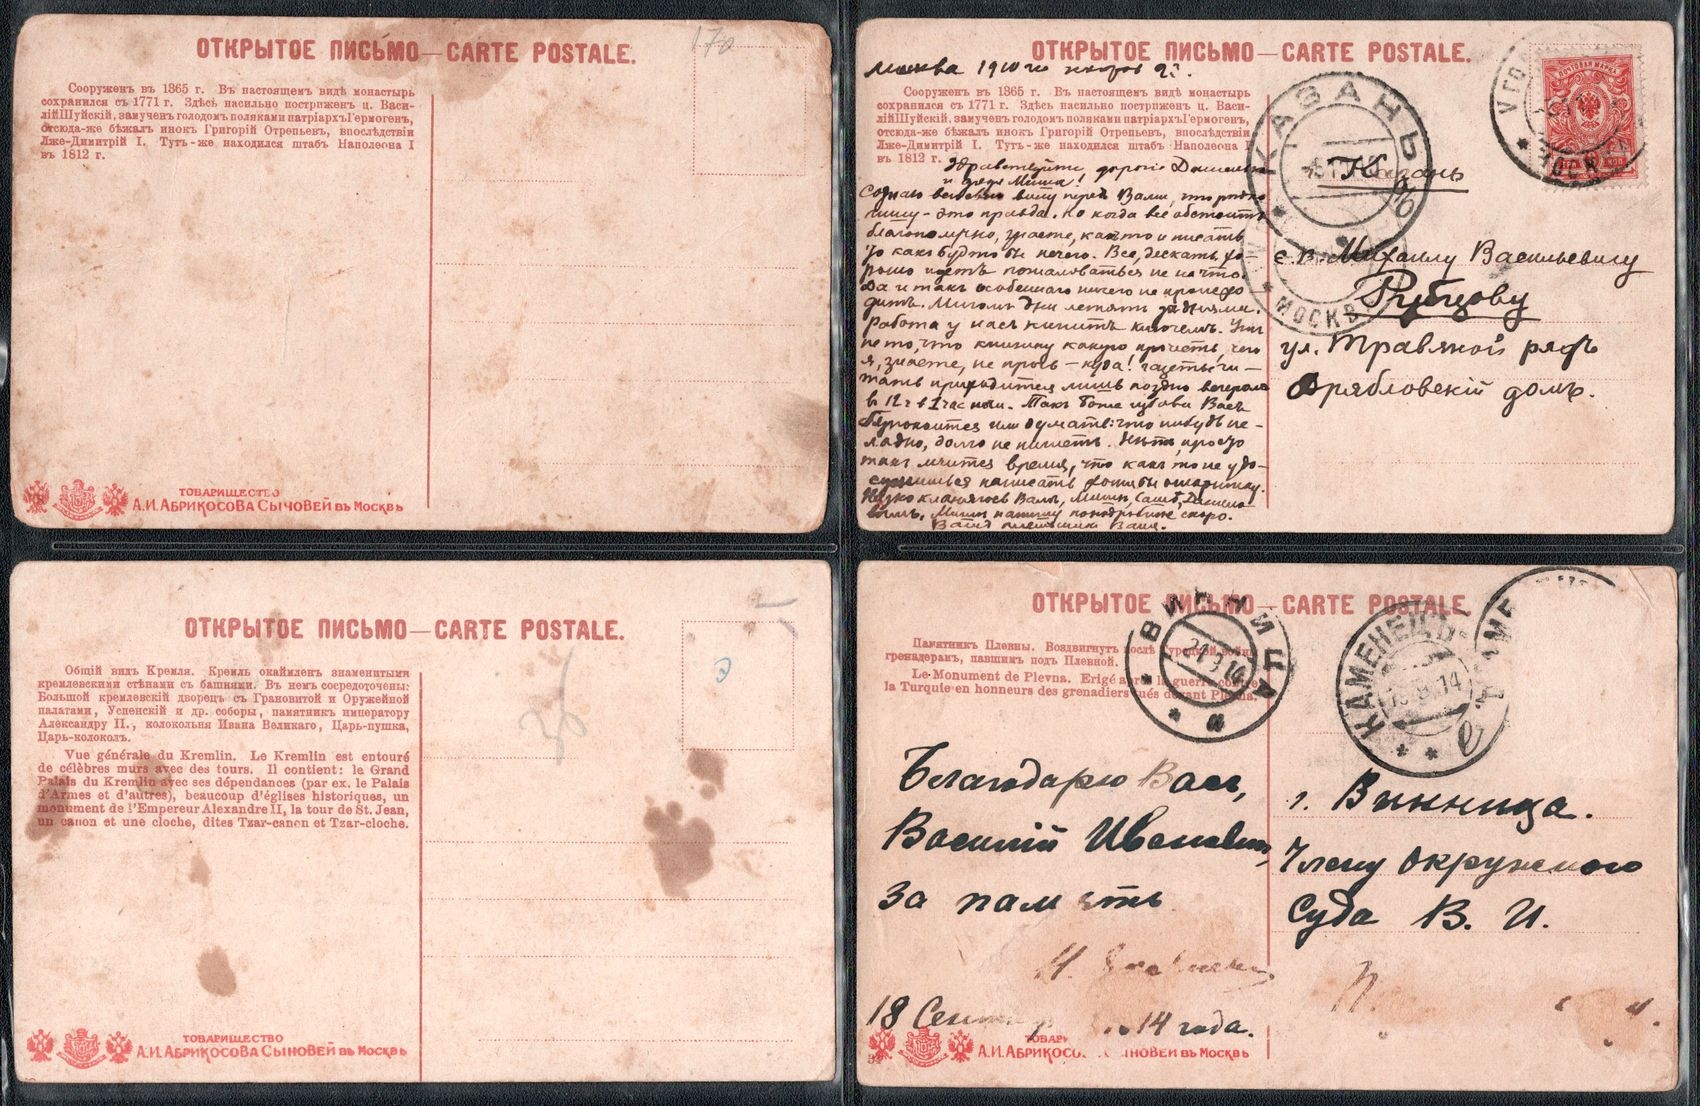 ОТКРЫТОЕ ПИСЬМО — CARTE POSTALE.
170
Сооруженъ въ 1865 г. Въ настоящемъ видѣ монастырь
сохранился съ 1771 г. Здѣсь насильно постриженъ ц. Васи-
лійШуйскій, замученъ голодомъ поляками патріархъГермогенъ,
отсюда-же бѣжалъ инокъ Григорій Отрепьевъ, впослѣдствіи
Лже-Димитрій I. Тутъ-же находился штабъ Наполеона I
въ 1812 г.
ТОВАРИЩЕСТВО
А.И.АБРИКОСОВА СЫНОВЕЙ ВЪ МОСКВѢ
ОТКРЫТОЕ ПИСЬМО — CARTE POSTALE.
Москва 1910 го
Сооруженъ въ 1865 г. Въ настоящемъ видѣ монастырь
сохранился съ 1771 г. Здѣсь насильно постриженъ ц. Васи-
лійШуйскій, замученъ голодомъ поляками патріархъГермогенъ,
отсюда-же бѣжалъ инокъ Григорій Отрепьевъ, впослѣдствіи
Лже-Димитрій I. Тутъ-же находился штабъ Наполеона I
въ 1812 г.
Здравствуйте, дорогіе
и дядя Миша!
вину передъ Вами, что рѣдко
пишу - это правда. Но когда все обстоитъ
благополучно, знаете, какъ то и писать
то какъ будто бы нечего. Все, дескать, хо-
рошо идетъ пожаловаться не на что.
Да и такъ особеннаго ничего не происхо
дитъ. Мигомъ дни летятъ за днями.
Работа у насъ кипитъ ключемъ. Ужъ
не то, что книжку какую прочесть, чего
я, знаете, не прочь - куда! газеты чи-
тать приходится лишь поздно вечеромъ
в 12 ч в 1 час ночи. Такъ Боже избави Васъ
безпокоится или думать: что нибудь не-
ладно, долго не пишетъ. Нѣтъ, просто
такъ мчится время, что какъ то не удо-
сужишься написать хотя бы открытку.
Низко кланяюсь Вамъ, Мишѣ, Сашѣ,
Мишѣ напишу поподробнѣе скоро.
Вашъ племянникъ Ваня.
КАЗАНЬ
МОСКВА
ПОЧТОВАЯ МАРКА
МОСКВА
Казань
е. в. Михаилу Васильевичу
Рубцову
ул. Травяной рядъ
домъ.
ТОВАРИЩЕСТВО
А.И.АБРИКОСОВА СЫНОВЕЙ ВЪ МОСКВѢ
ОТКРЫТОЕ ПИСЬМО — CARTE POSTALE.
Общій видъ Кремля. Кремль окаймленъ знаменитыми
кремлевскими стѣнами съ башнями. Въ немъ сосредоточены:
Большой кремлевскій дворецъ съ Грановитой и Оружейной
палатами, Успенскій и др. соборы, памятникъ императору
Александру II., колокольня Ивана Великаго, Царь-пушка,
Царь-колоколъ.
Vue générale du Kremlin. Le Kremlin est entouré
de célèbres murs avec des tours. Il contient: le Grand
Palais du Kremlin avec ses dépendances (par ex. le Palais
d'Armes et d'autres), beaucoup d'églises historiques, un
monument de l'Empereur Alexandre II, la tour de St. Jean,
un canon et une cloche, dites Tzar-canon et Tzar-cloche.
ТОВАРИЩЕСТВО
А.И.АБРИКОСОВА СЫНОВЕЙ ВЪ МОСКВѢ
ОТКРЫТОЕ ПИСЬМО — CARTE POSTALE.
Памятникъ Плевны. Воздвигнутъ послѣ турецкой войны
гренадерамъ, павшимъ подъ Плевной.
Le Monument de Plevna. Erigé après la guerre contre
la Turquie en honneurs des grenadiers tués devant Plevna.
ВИННИЦА
21.9.14
а
КАМЕНЕЦЪ
19.9.14
Благодарю Васъ,
Василій Ивановичъ,
за память
18 14 года.
г. Винница.
Члену Окружного
Суда В. И.
А.И.АБРИКОСОВА СЫНОВЕЙ ВЪ МОСКВѢ